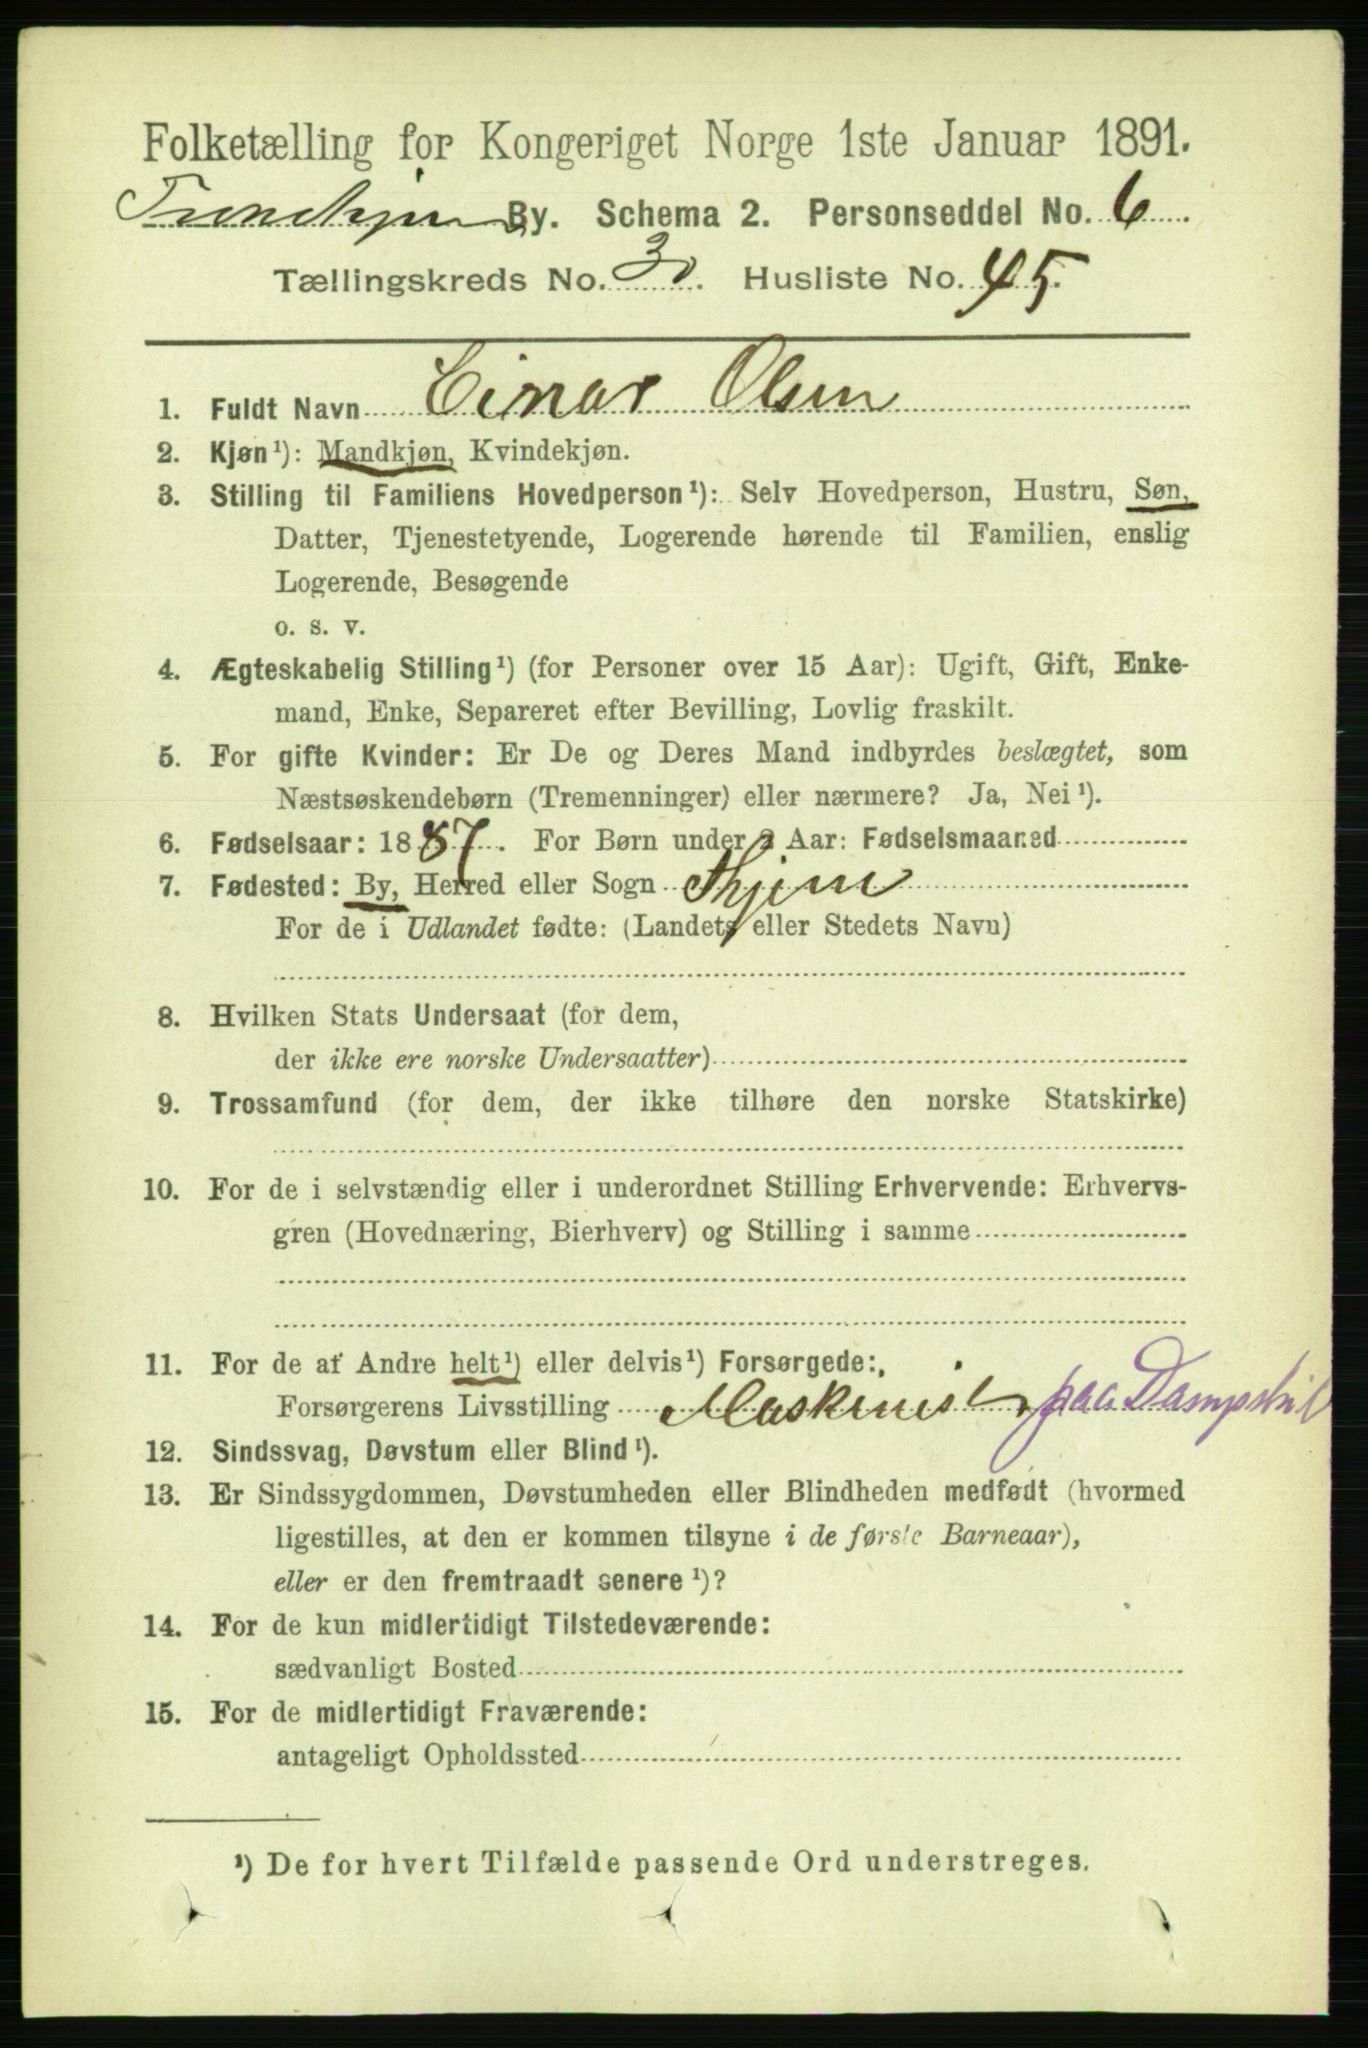 Folketælling for Kongeriget Norge 1ste Januar 1891.
Trondhjem By. Schema 2. Personseddel No. 6.
Tællingskreds No. 30. Husliste No. 45.
1. Fuldt Navn Einar Olsen
2. Kjøn¹): Mandkjøn, Kvindekjøn.
3. Stilling til Familiens Hovedperson¹): Selv Hovedperson, Hustru, Søn,
Datter, Tjenestetyende, Logerende hørende til Familien, enslig
Logerende, Besøgende
o. s. v.
4. Ægteskabelig Stilling¹) (for Personer over 15 Aar): Ugift, Gift, Enke-
mand, Enke, Separeret efter Bevilling, Lovlig fraskilt.
5. For gifte Kvinder: Er De og Deres Mand indbyrdes beslægtet, som
Næstsøskendebørn (Tremenninger) eller nærmere? Ja, Nei¹).
6. Fødselsaar: 1887. For Børn under 2 Aar: Fødselsmaaned
7. Fødested: By, Herred eller Sogn Thjem
For de i Udlandet fødte: (Landets eller Stedets Navn)
8. Hvilken Stats Undersaat (for dem,
der ikke ere norske Undersaatter)
9. Trossamfund (for dem, der ikke tilhøre den norske Statskirke)
10. For de i selvstændig eller i underordnet Stilling Erhvervende: Erhvervs-
gren (Hovednæring, Bierhverv) og Stilling i samme
11. For de af Andre helt¹) eller delvis¹) Forsørgede:
Forsørgerens Livsstilling Maskinist paa Dampskib
12. Sindssvag, Døvstum eller Blind¹).
13. Er Sindssygdommen, Døvstumheden eller Blindheden medfødt (hvormed
ligestilles, at den er kommen tilsyne i de første Barneaar),
eller er den fremtraadt senere¹)?
14. For de kun midlertidigt Tilstedeværende:
sædvanligt Bosted
15. For de midlertidigt Fraværende:
antageligt Opholdssted
¹) De for hvert Tilfælde passende Ord understreges.